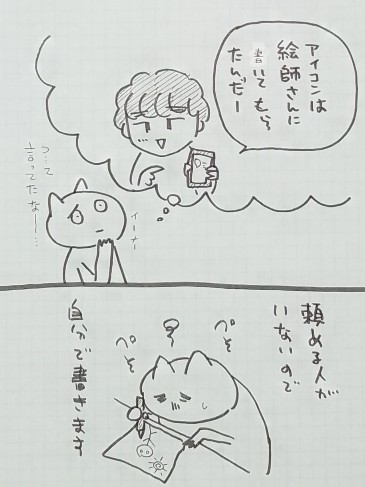 アイコンは
絵師さんに
書いてもらっ
たんだー
って
言ってたな〜…
イーナー
頼める人が
いないので
ペそ
ペそ
自分で書きます